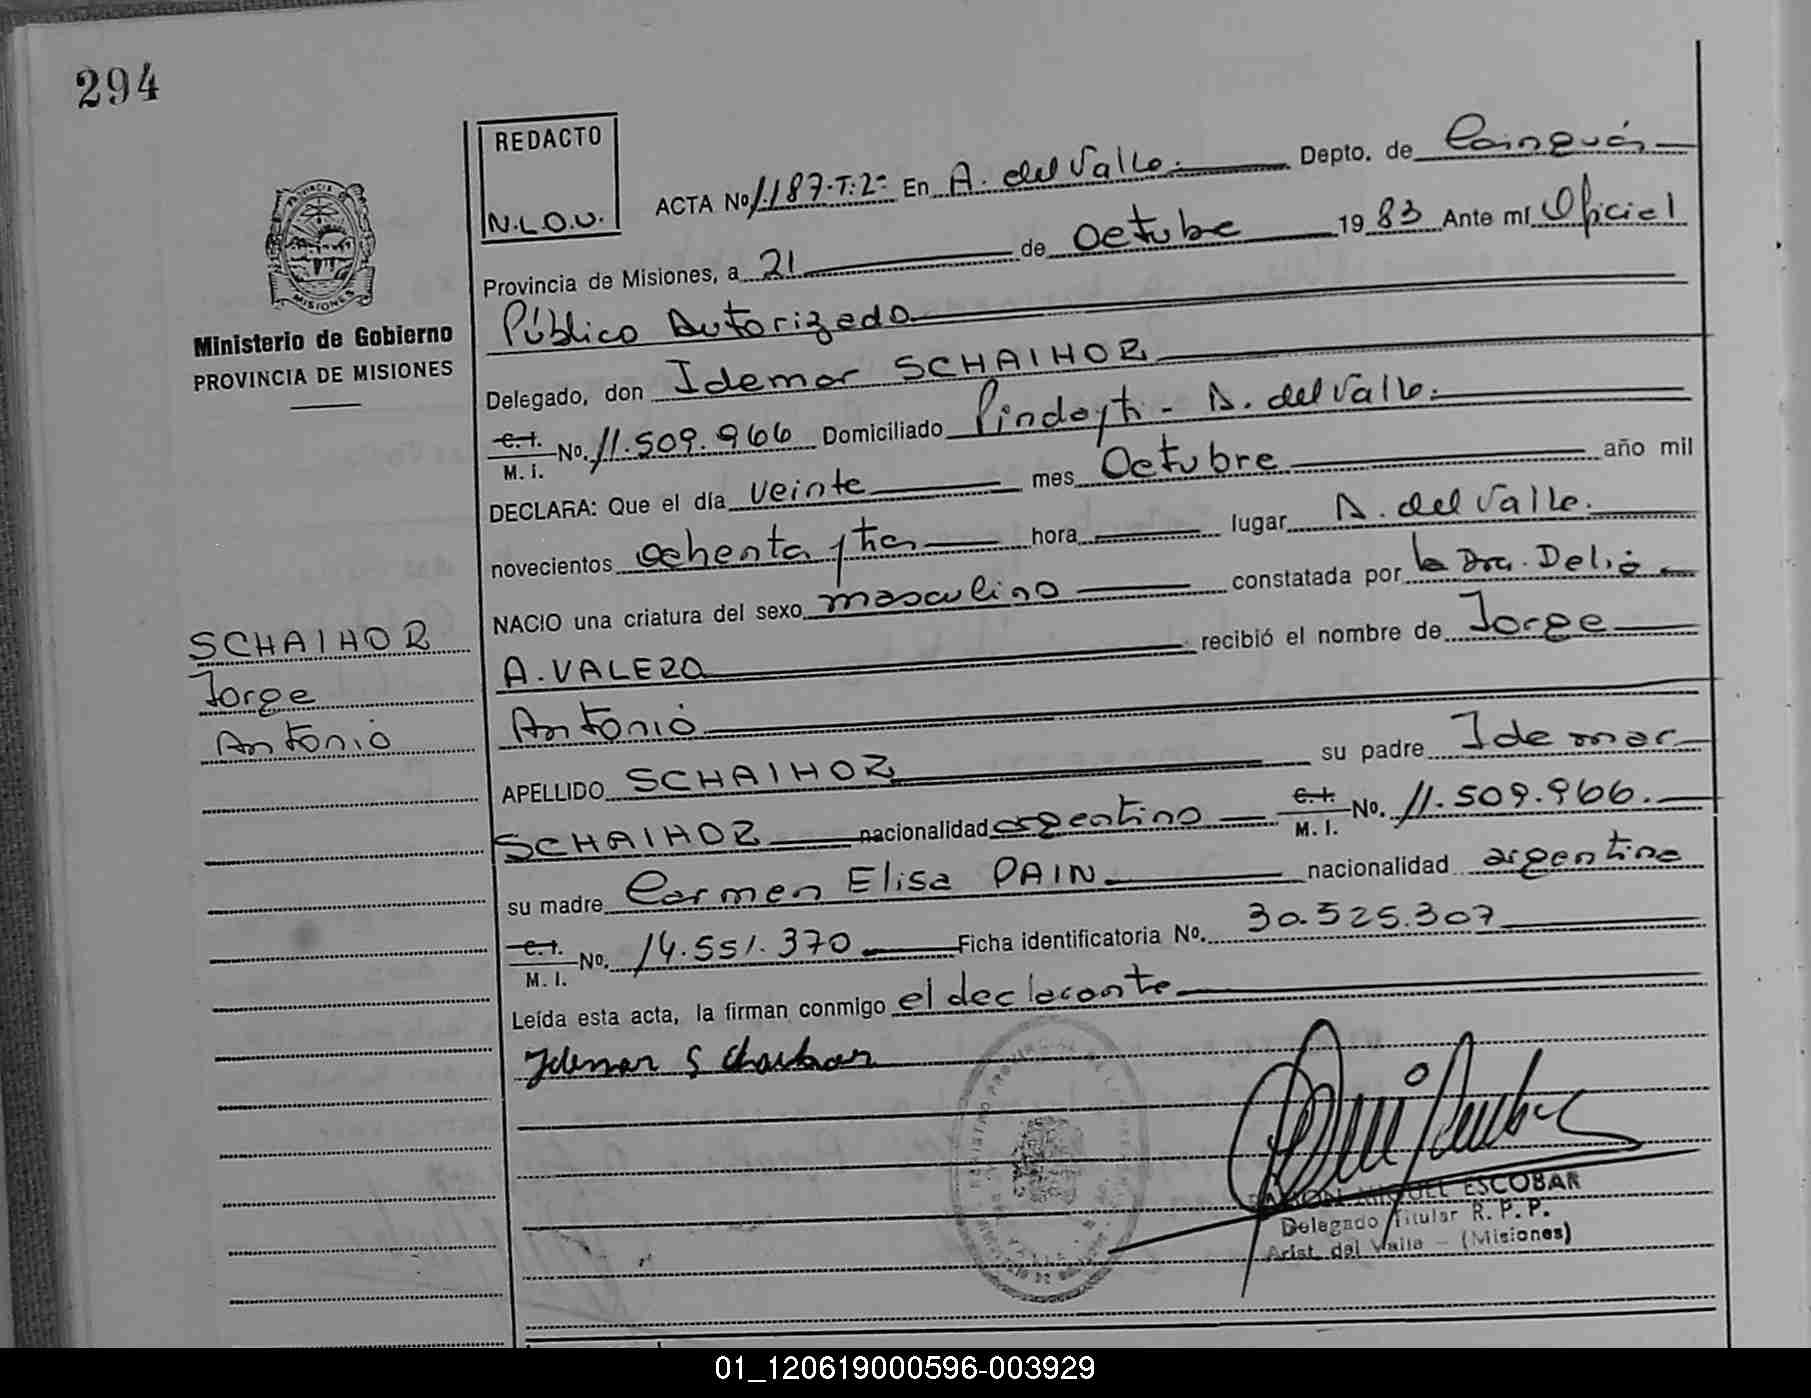 294
REDACTO
N.L.O.U.
ACTA No 1.187-T:2º En A. del Valle. Depto. de Cainguás
Provincia de Misiones, a 21 de Octubre 1983 Ante mí Oficial
Público Autorizado
MISIONES
Ministerio de Gobierno
PROVINCIA DE MISIONES
Delegado, don Idemar SCHAIHOR
C.I. M. I. No. 11.509.966 Domiciliado Pindayti - A. del Valle.
DECLARA: Que el día veinte mes Octubre año mil
novecientos ochenta y tres hora lugar A. del Valle.
NACIO una criatura del sexo masculino constatada por la Dra. Delia
A. VALERA recibió el nombre de Jorge
Antonio
SCHAIHOR
Jorge
Antonio
APELLIDO SCHAIHOR su padre Idemar
SCHAIHOR nacionalidad argentino C.I. M. I. No. 11.509.966.
su madre Carmen Elisa PAIN nacionalidad argentina
C.I. M. I. No. 14.551.370 Ficha identificatoria No. 30.525.307
Leída esta acta, la firman conmigo el declarante
Idemar Schaihor
RAMON MIGUEL ESCOBAR
Delegado Titular R. P. P.
Arist. del Valle - (Misiones)
01_120619000596-003929